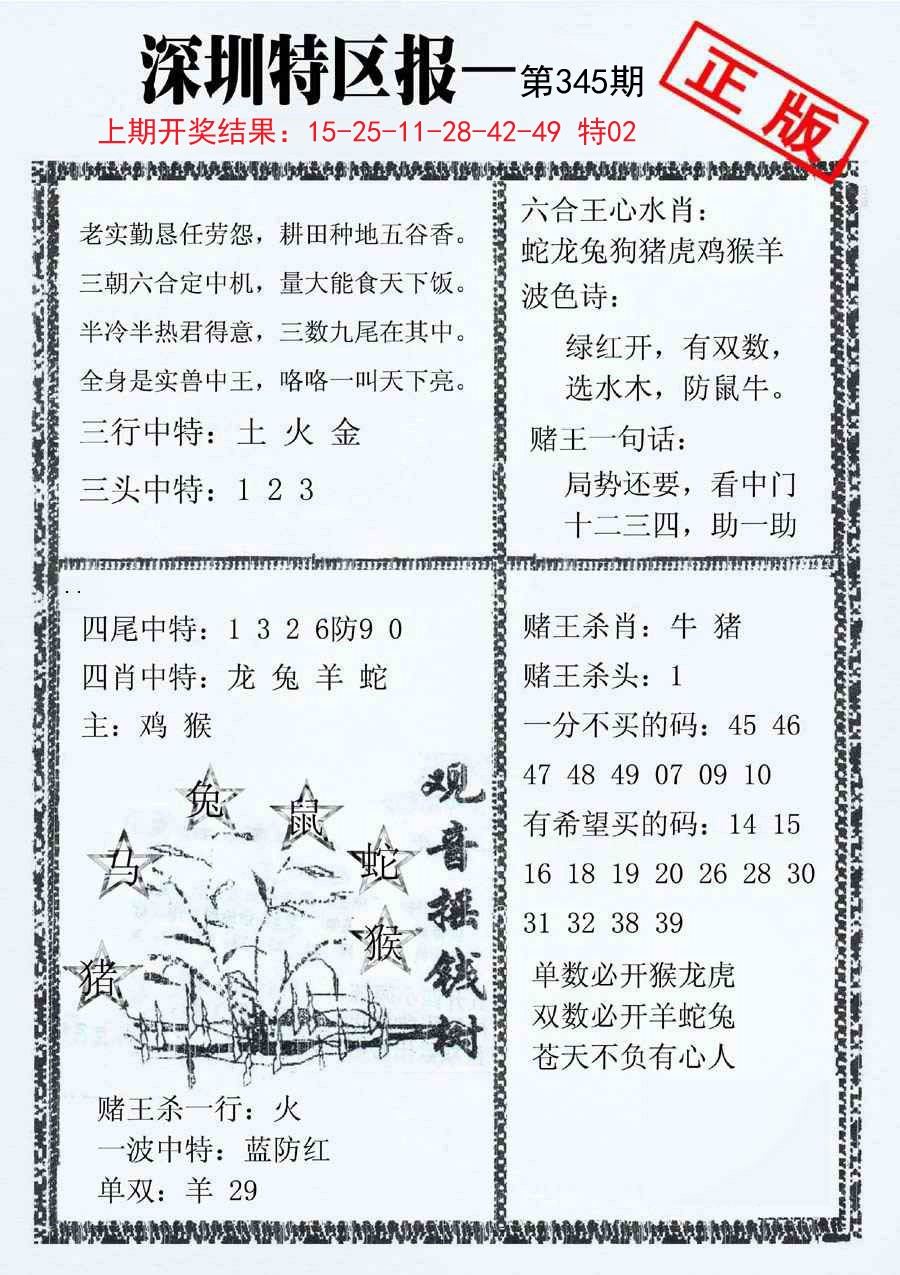 深圳特区报一第345期
正版
上期开奖结果：15-25-11-28-42-49 特02
老实勤恳任劳怨，耕田种地五谷香。
三朝六合定中机，量大能食天下饭。
半冷半热君得意，三数九尾在其中。
全身是实兽中王，咯咯一叫天下亮。
三行中特：土 火 金
三头中特：1 2 3
六合王心水肖：
蛇龙兔狗猪虎鸡猴羊
波色诗：
绿红开，有双数，
选水木，防鼠牛。
赌王一句话：
局势还要，看中门
十二三四，助一助
四尾中特：1 3 2 6防9 0
四肖中特：龙 兔 羊 蛇
主：鸡 猴
兔
鼠
马
蛇
猴
猪
观音摇钱树
赌王杀一行：火
一波中特：蓝防红
单双：羊 29
赌王杀肖：牛 猪
赌王杀头：1
一分不买的码：45 46
47 48 49 07 09 10
有希望买的码：14 15
16 18 19 20 26 28 30
31 32 38 39
单数必开猴龙虎
双数必开羊蛇兔
苍天不负有心人